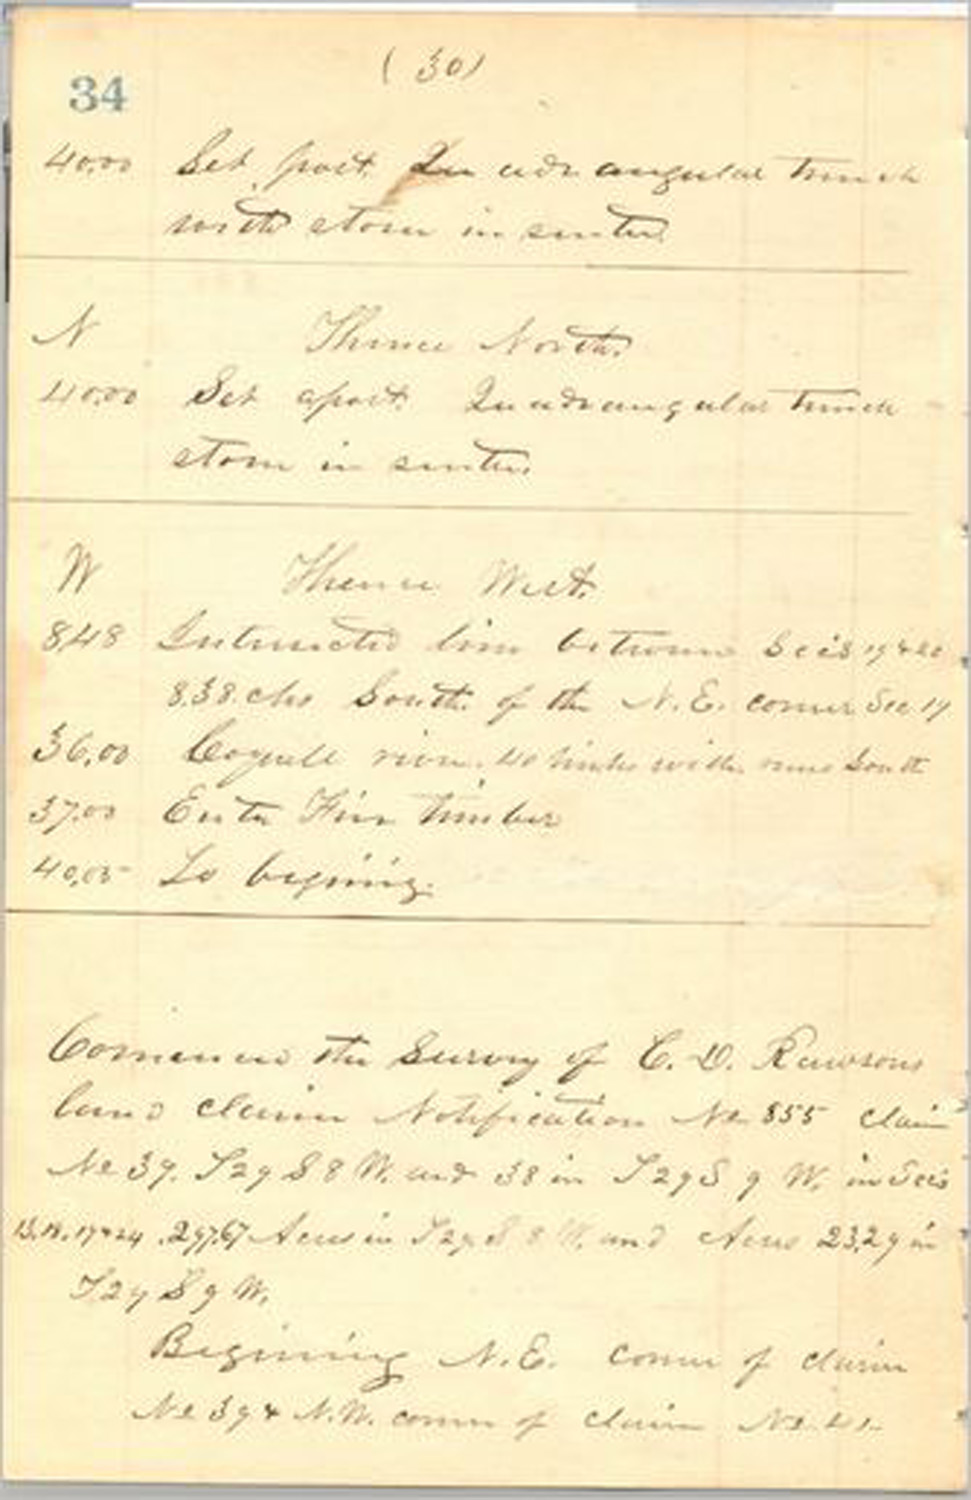 34
(30)
40.00 Set post Quadrangular trench
with stone in senter
N Thence North.
40.00 Set a post. Quadrangular trench
stone in senter.
W Thence West.
848 Intersected line between Secs 19 & 20
8.38. chs South of the N.E. corner Sec 19
36.00 Coquille river. 40 links wide runs South
37.00 Enter Fir timber
40.05 To begining.
Commence the Survey of C. D. Rawsons
land claim Notification No 855 claim
No 39. T29 S 8 W. and 38 in T29 S 9 W. in Secs
13, 18, 19 & 24 .297.67 Acres in T29 S 8 W. and Acres 23.29 in
T29 S 9 W.
Begining N.E. corner of claim
No 39 & N.W. corner of claim No 41-